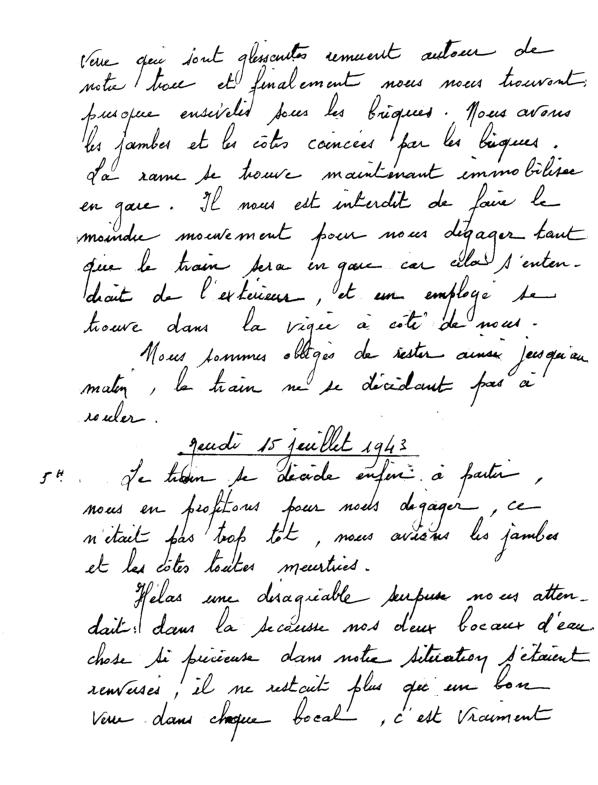 verre qui sont glissantes remuent autour de
notre trou et finalement nous nous trouvont
presque ensevelis sous les briques. Nous avons
les jambes et les côtes coincées par les briques.
La rame se trouve maintenant immobilisée
en gare. Il nous est interdit de faire le
moindre mouvement pour nous dégager tant
que le train sera en gare car cela s'enten-
drait de l'extérieur, et un employé se
trouve dans la vigie à côté de nous.
Nous sommes obligés de rester ainsi jusqu'au
matin, le train ne se décidant pas à
rouler.
Jeudi 15 juillet 1943
5H. Le train se décide enfin à partir,
nous en profitons pour nous dégager, ce
n'était pas trop tôt, nous avions les jambes
et les côtes toutes meurtries.
Hélas une désagréable surprise nous atten-
dait: dans la secousse nos deux bocaux d'eau
chose si précieuse dans notre situation s'étaient
renversés, il ne restait plus qu'un bon
verre dans chaque bocal, c'est vraiment